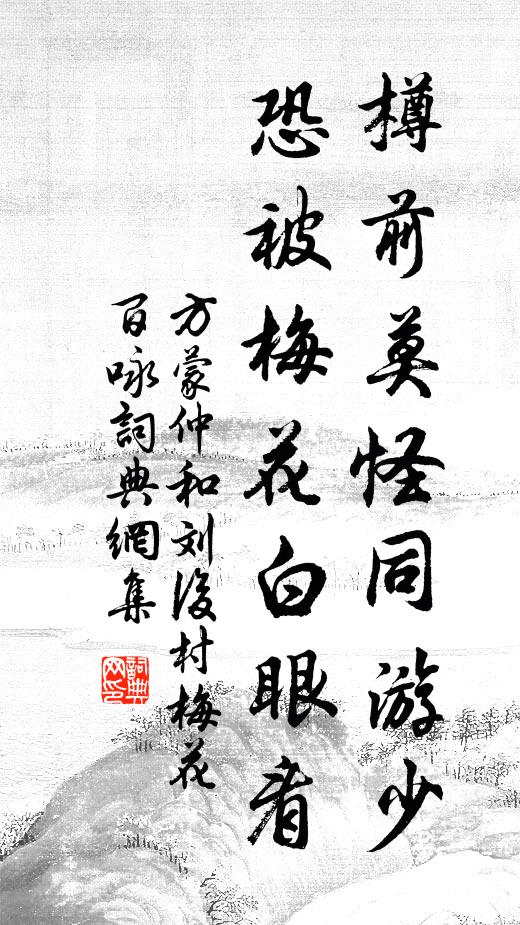 樽前莫怪同游少
恐被梅花白眼看
方蒙仲和刘後村梅花
百咏詞典網集
詞典
网印